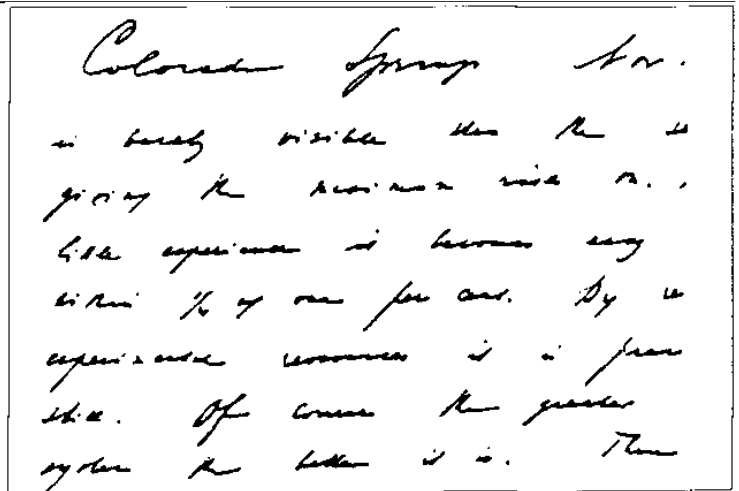 Colorado Springs Nov.
is barely visible then the
giving the maximum rise on.
little experience it becomes easy
within 1/4 of one per cent. By
experimental resources it is
still. Of course the greater
system the better it is. Then